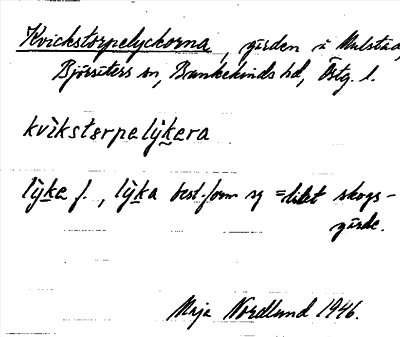 Kvickstorpelyckorna, gärden i Mulstad,
Björsäters sn, Bankekinds hd, Östg. l.
kvìkstɵrpelỳkera
lỳke f., lỳka best. form sg = litet skogs-
gärde.
Maja Nordlund 1946.